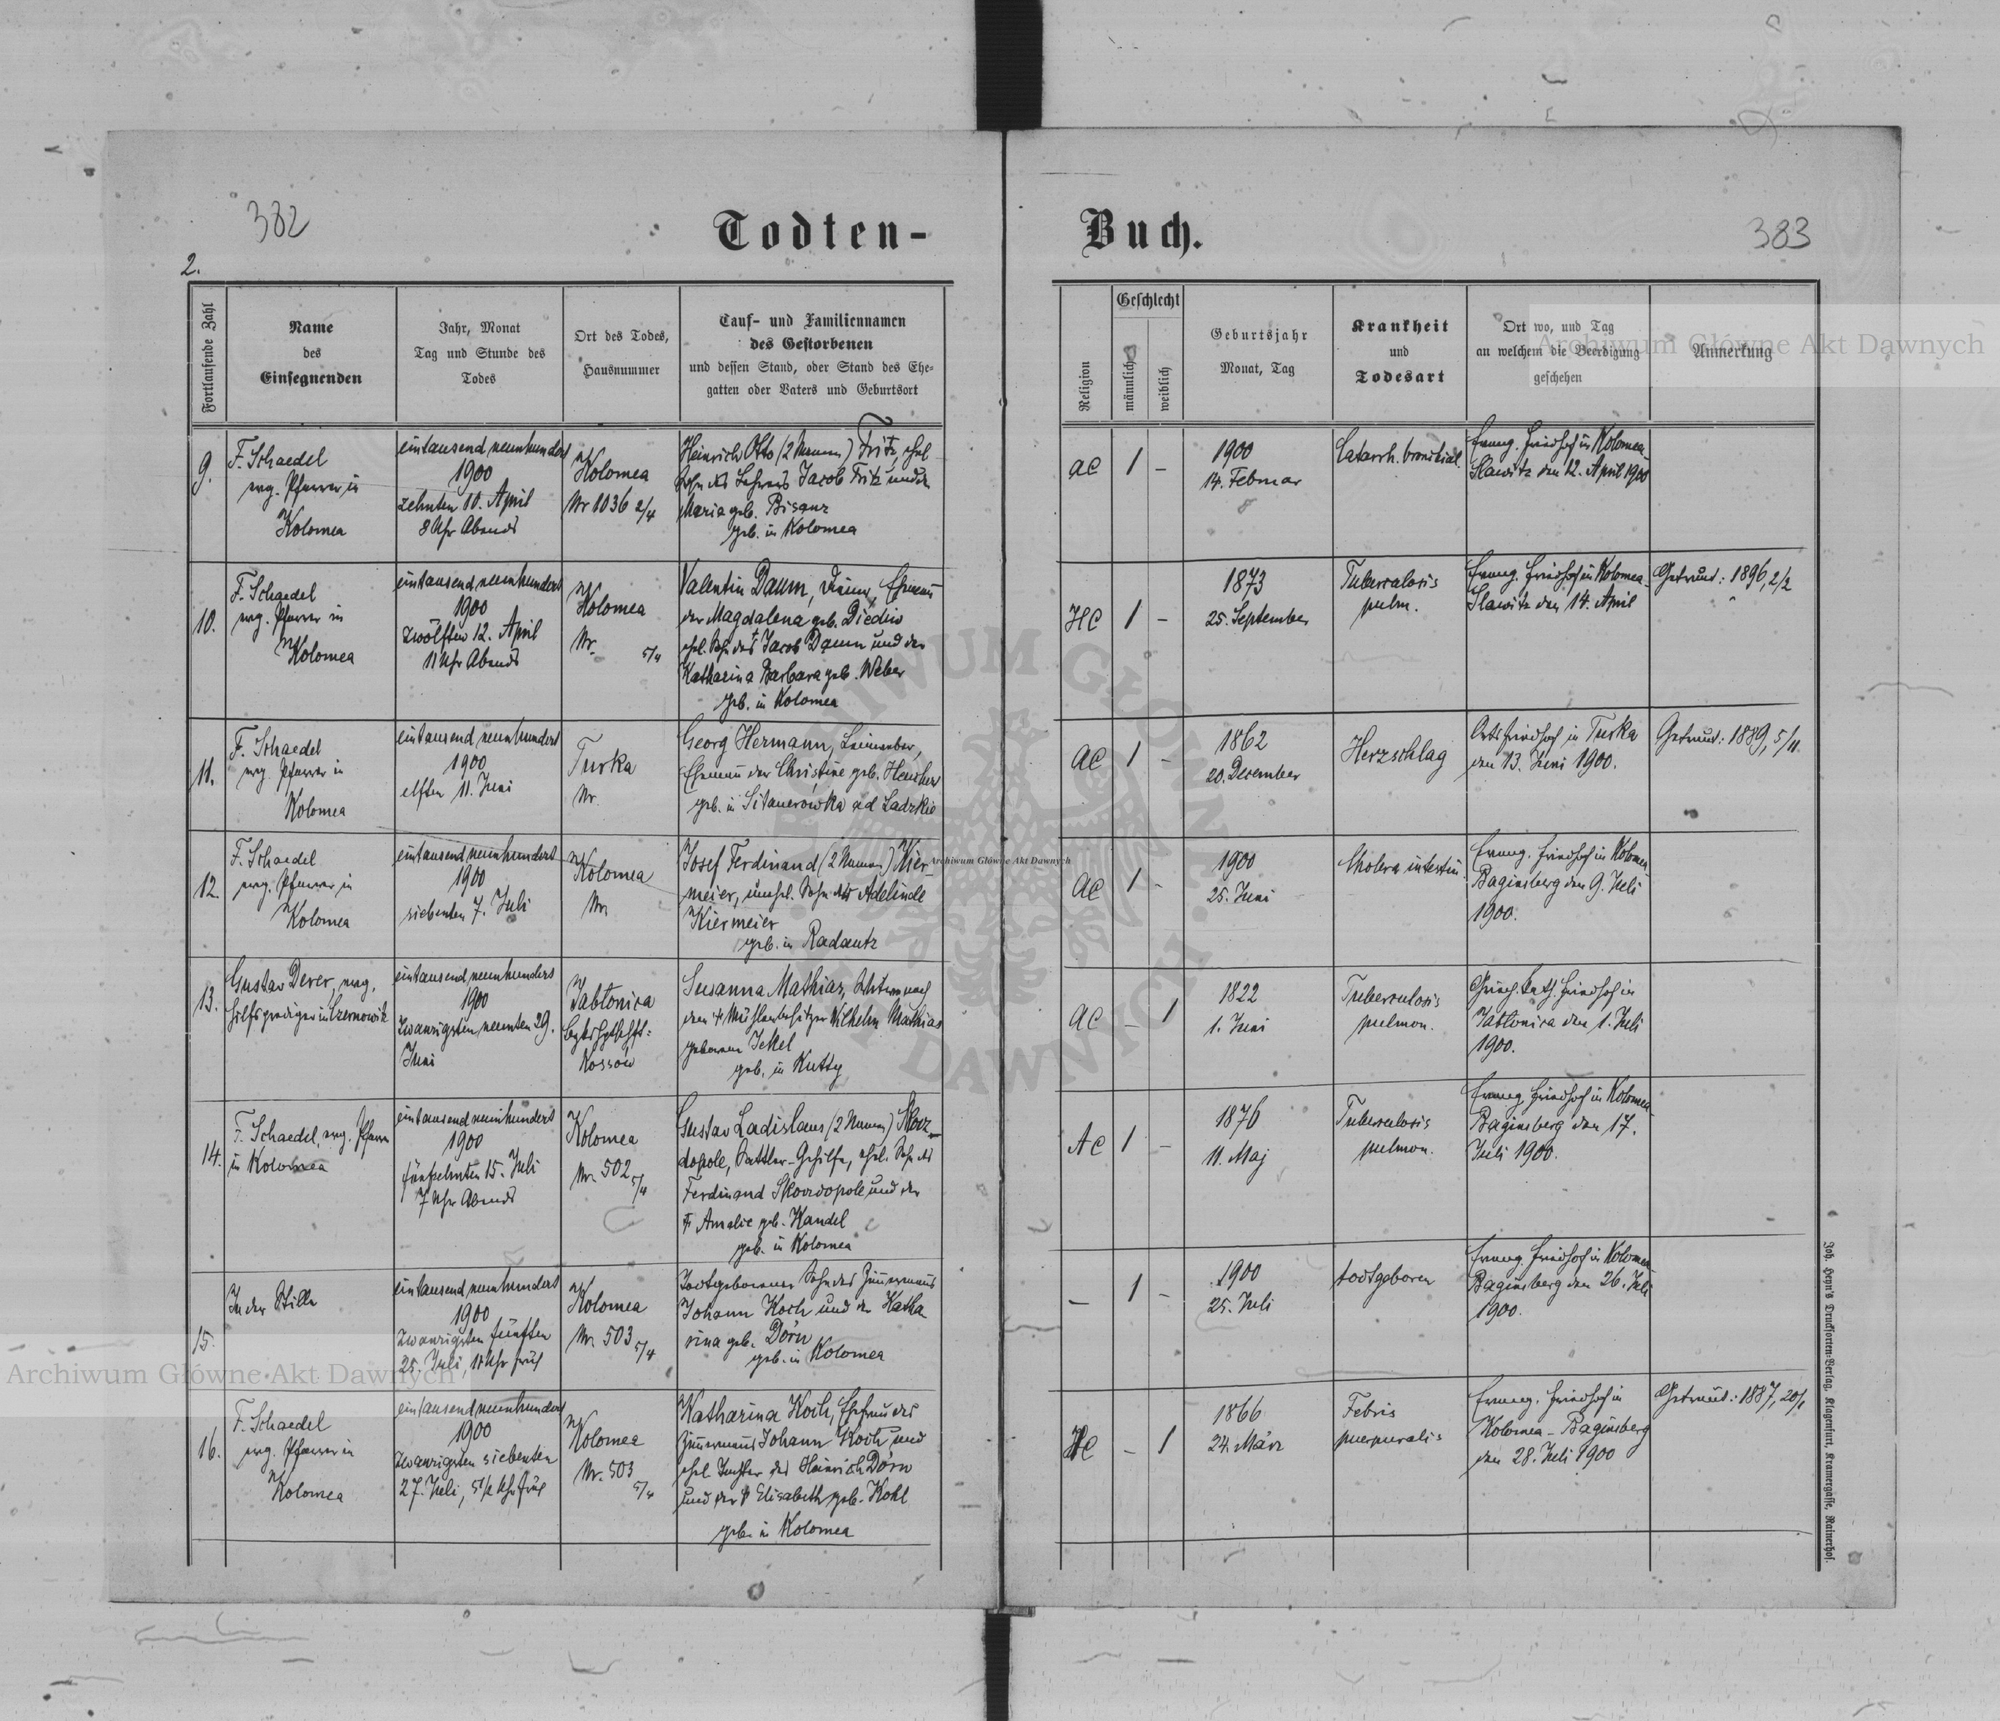 382
Todten-
2.
Fortlaufende Zahl
Name
des
Einsegnenden
Jahr, Monat
Tag und Stunde des
Todes
Ort des Todes,
Hausnummer
Tauf- und Familiennamen
des Gestorbenen
und dessen Stand, oder Stand des Ehe-
gatten oder Vaters und Geburtsort
9.
F. Schaedel
evg. Pfarrer in
Kolomea
eintausend neunhundert
1900
zehnten 10. April
8 Uhr Abends
Kolomea
Nr 1036 2/4
Heinrich Otto (2 Namen) Fritz, ehel.
Sohn des Lehrers Jacob Fritz und der
Maria geb. Bisanz
geb. in Kolomea
10.
F. Schaedel
evg. Pfarrer in
Kolomea
eintausend neunhundert
1900
zwölften 12. April
11 Uhr Abends
Kolomea
Nr. 5/4
Valentin Daum, Ehemann
der Magdalena geb. Diedin
ehel. Sohn des † Jacob Daum und der
Katharina Barbara geb. Weber
geb. in Kolomea
11.
F. Schaedel
evg. Pfarrer in
Kolomea
eintausend neunhundert
1900
elften 11. Juni
Turka
Nr.
Georg Hermann, Leinweber,
Ehemann der Christine geb.
geb. in Sitauerowka ad Ladzkie
12.
F. Schaedel
evg. Pfarrer in
Kolomea
eintausend neunhundert
1900
siebenten 7. Juli
Kolomea
Nr.
Josef Ferdinand (2 Namen) Kier-
meier, unehel. Sohn der Adelinde
Kiermeier
geb. in Radautz
13.
Gustav Derer, evg.
Hilfsprediger in Czernowitz
eintausend neunhundert
1900
zwanzigsten neunten 29.
Juni
Jabłonica
Bezkshptschft:
Kossów
Susanna Mathias, Witwe nach
dem † Mühlenbesitzer Wilhelm Mathias
geborene Jekel
geb. in Kutty
14.
F. Schaedel, evg. Pfarrer
in Kolomea
eintausend neunhundert
1900
fünfzehnten 15. Juli
7 Uhr Abends
Kolomea
Nr. 502 5/4
Gustav Ladislaus (2 Namen) Skorz-
dopole, Sattler-Gehilfe, ehel. Sohn des
Ferdinand Skorzdopole und der
† Amalie geb. Kandel
geb. in Kolomea
15.
In der Stille
eintausend neunhundert
1900
zwanzigsten fünften
25. Juli, 11 Uhr früh
Kolomea
Nr. 503 5/4
Todtgeborener Sohn des Zimmermanns
Johann Koch und der Katha-
rina geb. Dörn
geb. in Kolomea
16.
F. Schaedel
evg. Pfarrer in
Kolomea
eintausend neunhundert
1900
zwanzigsten siebenten
27. Juli, 5 1/2 Uhr früh
Kolomea
Nr. 503
5/4
Katharina Koch, Ehefrau des
Zimmermanns Johann Koch und
ehel. Tochter des Heinrich Dörn
und der † Elisabeth geb. Kohl
geb. in Kolomea
Buch.
383
Religion
Geschlecht
männlich
weiblich
Geburtsjahr
Monat, Tag
Krankheit
und
Todesart
Ort wo, und Tag
an welchem die Beerdigung
geschehen
Anmerkung
AC 1 –
1900
14. Februar
Catarrh. bronchial.
Evang. Friedhof in Kolomea-
Slawitz den 12. April 1900
HC 1 –
1873
25. September
Tuberculosis
pulm.
Evang. Friedhof in Kolomea-
Slawitz den 14. April
Getraut: 1896, 2/2
AC 1 –
1862
20. December
Herzschlag
Ortsfriedhof in Turka
den 13. Juni 1900.
Getraut: 1889, 5/11.
AC 1 –
1900
25. Juni
Cholera intestin.
Evang. Friedhof in Kolomea-
Baginsberg den 9. Juli
1900.
AC – 1
1822
1. Juni
Tuberculosis
pulmon.
Griech. kath. Friedhof in
Jabłonica den 1. Juli
1900.
AC 1 –
1876
11. Maj
Tuberculosis
pulmon.
Evang. Friedhof in Kolomea-
Baginsberg den 17.
Juli 1900.
– 1 –
1900
25. Juli
todtgeboren
Evang. Friedhof in Kolomea-
Baginsberg den 26. Juli
1900.
HC – 1
1866
24. März
Febris
puerperalis
Evang. Friedhof in
Kolomea – Baginsberg
den 28. Juli 1900
Getraut: 1887, 20/1
Joh. Heyn's Drucksorten-Verlag, Klagenfurt, Kramergasse, Rainerhof.
Archiwum Główne Akt Dawnych
Archiwum Główne Akt Dawnych
Archiwum Główne Akt Dawnych
ARCHIWUM GŁÓWNE AKT DAWNYCH